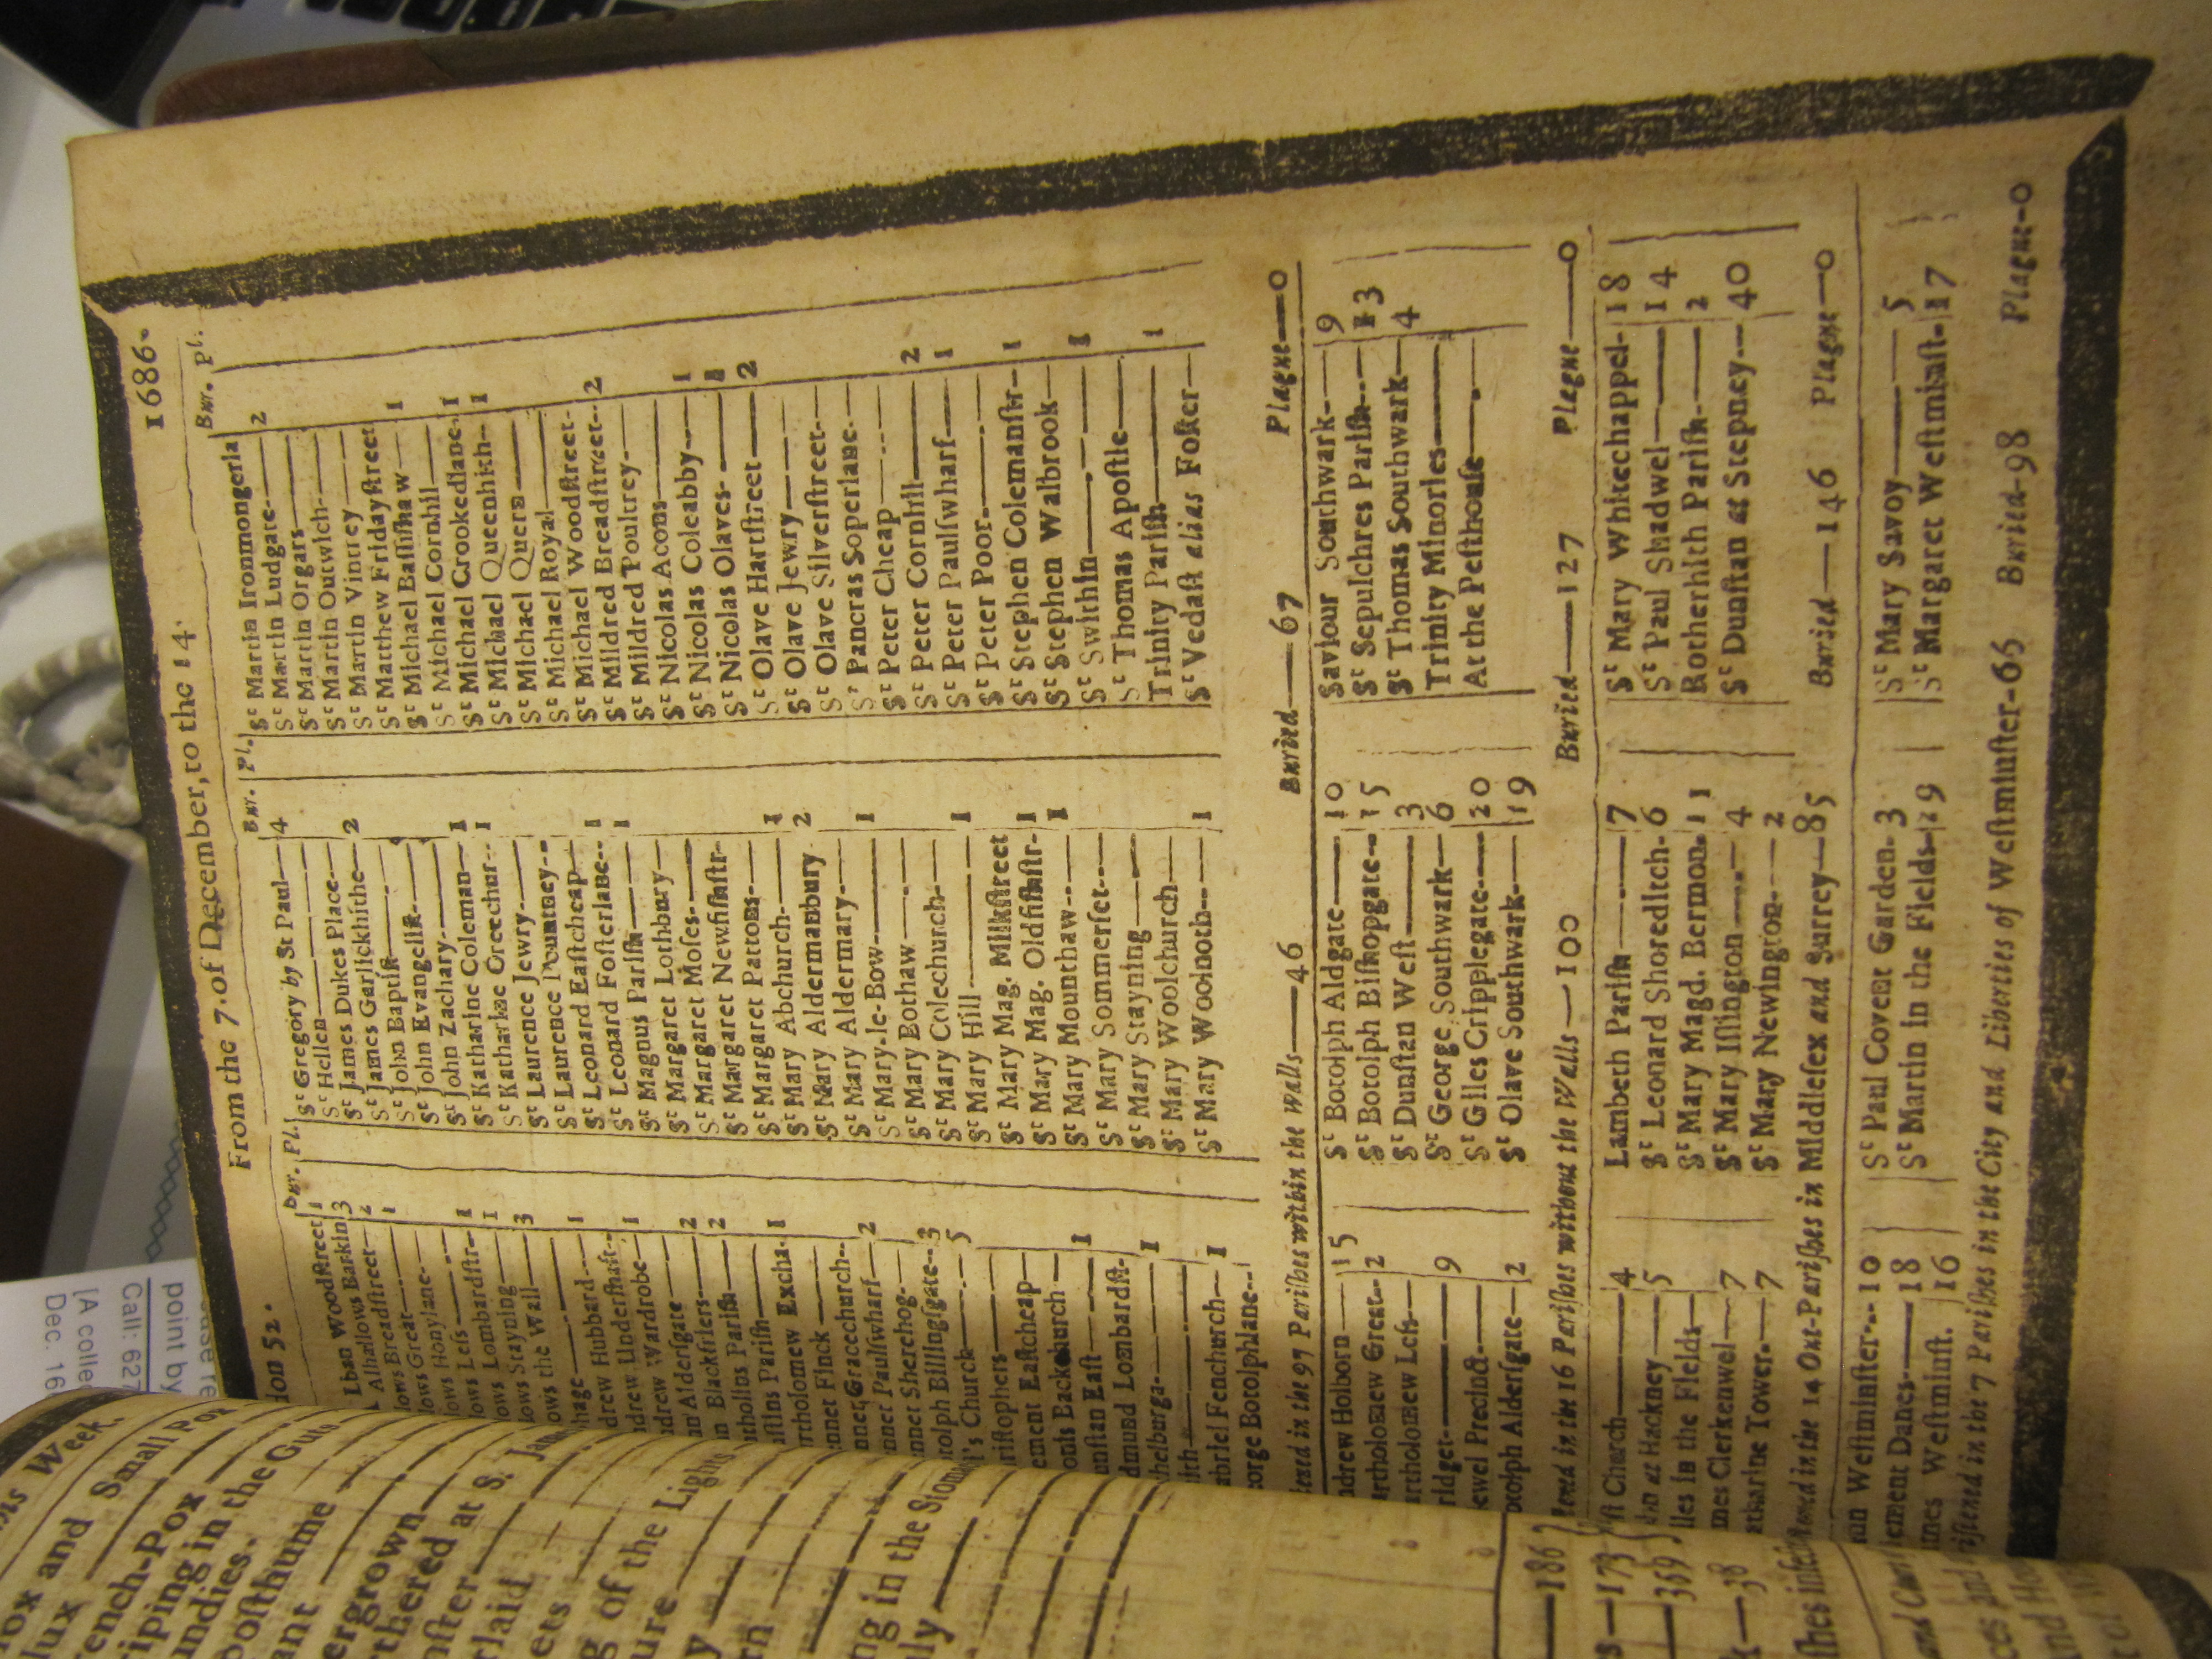 don 52.
From the 7. of December, to the 14.
1686.
Bur. Pl.
lban Woodſtreet 1
Alhallows Barkin 3
lows Breadſtreet— 2
lows Great— 1
lows Honylane—
lows Leſs— 1
lows Lombardſtr— 1
lows Stayning— 3
lows the Wall—
hage— 1
drew Hubbard—
ndrew Underſhaft— 1
ndrew Wardrobe—
nn Alderſgate— 2
n Blackfriers— 2
tholins Pariſh—
uſtins Pariſh— 1
rtholomew Excha.
nnet Finck—
nnet Gracechurch— 2
nnet Paulſwharf—
nnet Sherehog—
tolph Billingſgate— 3
l's Church— 5
riſtophers—
ement Eaſtcheap—
onis Backchurch— 1
unſtan Eaſt—
dmund Lombardſt.
helburga— 1
ith—
abriel Fenchurch— 1
eorge Botolphlane—
Bur. Pl.
St Gregory by St Paul— 4
St Hellen—
St James Dukes Place—
St James Garlickhithe— 2
St John Baptiſt—
St John Evangeliſt—
St John Zachary—
St Katharine Coleman— 1
St Katharine Creechur— 1
St Laurence Jewry—
St Laurence Pountney—
St Leonard Eaſtcheap—
St Leonard Foſterlane— 1
St Magnus Pariſh— 1
St Margaret Lothbury—
St Margaret Moſes—
St Margaret Newfiſhſtr—
St Margaret Pattons—
St Mary Abchurch— 1
St Mary Aldermanbury 2
St Mary Aldermary—
St Mary-le-Bow— 1
St Mary Bothaw—
St Mary Colechurch—
St Mary Hill— 1
St Mary Mag. Milkſtreet
St Mary Mag. Oldfiſhſtr— 1
St Mary Mounthaw— 1
St Mary Sommerſet—
St Mary Stayning—
St Mary Woolchurch—
St Mary Woolnoth— 1
Bur. Pl.
St Martin Ironmongerla
St Martin Ludgate— 2
St Martin Orgars—
St Martin Outwich—
St Martin Vintrey—
St Matthew Fridayſtreet
St Michael Baſſiſhaw— 1
St Michael Cornhil—
St Michael Crookedlane— 1
St Michael Queenhith— 1
St Michael Quern—
St Michael Royal—
St Michael Woodſtreet—
St Mildred Breadſtreet— 2
St Mildred Poultrey—
St Nicolas Acons—
St Nicolas Coleabby— 1
St Nicolas Olaves— 1
St Olave Hartſtreet— 2
St Olave Jewry—
St Olave Silverſtreet—
St Pancras Soperlane—
St Peter Cheap—
St Peter Cornhil— 2
St Peter Paulſwharf— 1
St Peter Poor—
St Stephen Colemanſtr— 1
St Stephen Walbrook—
St Swithin— 1
St Thomas Apoſtle—
Trinity Pariſh— 1
St Vedaſt alias Foſter—
ſtened in the 97 Pariſhes within the Walls—46 Buried—67 Plague—0
ndrew Holborn— 15
artholomew Great— 2
artholomew Leſs—
ridget— 9
ewel Precinct—
otolph Alderſgate— 2
St Botolph Aldgate— 10
St Botolph Biſhopgate— 15
St Dunſtan Weſt— 3
St George Southwark— 6
St Giles Cripplegate— 20
St Olave Southwark— 19
Saviour Southwark— 9
St Sepulchres Pariſh— 13
St Thomas Southwark— 4
Trinity Minories—
At the Peſthouſe—
ſtened in the 16 Pariſhes without the Walls—100 Buried—127 Plague—0
ſt Church— 4
hn at Hackney— 5
iles in the Fields—
mes Clerkenwel— 7
atharine Tower— 7
Lambeth Pariſh— 7
St Leonard Shoreditch— 6
St Mary Magd. Bermon. 11
St Mary Iſlington— 4
St Mary Newington— 2
St Mary Whitechappel— 18
St Paul Shadwel— 14
Rotherhith Pariſh— 2
St Dunſtan at Stepney— 40
ſtened in the 14 Out-Pariſhes in Middleſex and Surrey—85 Buried—146 Plague—0
an Weſtminſter— 10
lement Danes— 18
mes Weſtminſt. 16
St Paul Covent Garden— 3
St Martin in the Fields— 29
St Mary Savoy— 5
St Margaret Weſtminſt— 17
iſtened in the 7 Pariſhes in the City and Liberties of Weſtminſter-65 Buried-98 Plague-0
Week.
ox and Small Pox
lux
rench-Pox
riping in the Guts
undies.
poſthume
ant
ergrown
rthered at S. Jam
nſter
rlaid
ets
g of the Lights
ure
y
rn
ng in the Stom
ly
—186
s—173
—369
k—38
Call: 627
[A collec
Dec. 16
point by